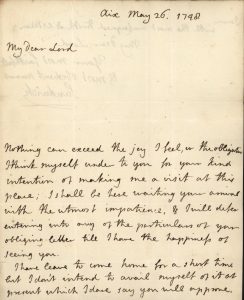 Aix May 26. 1748
My dear Lord
Nothing can exceed the joy I feel, or the obligation
I think myself under to you for your kind
intention of making me a visit at this
place; I shall be here waiting your arrival
with the utmost impatience, & I will defer
entering into any of the particulars of your
obliging letter till I have the happiness of
seeing you
I have leave to come home for a short time
but I don't intend to avail myself of it at
present which I dare say you will approve